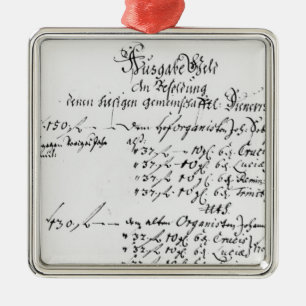 Ausgabe Geld
An Besoldung
denen hiesigen Gemeinschafftl: Dienern
150 fl — dem Hoforganisten Joh: Seb
37 fl 10 gl 6 d Crucis
37 fl 10 gl 6 d Luciæ
37 fl 10 gl 6 d Remini
37 fl 10 gl 6 d Trinit
Uts.
430 fl — dem alten Organisten Johann
37 fl 10 gl 6 d Crucis
37 fl 10 gl 6 d Luciæ
37 fl 10 gl 6 d